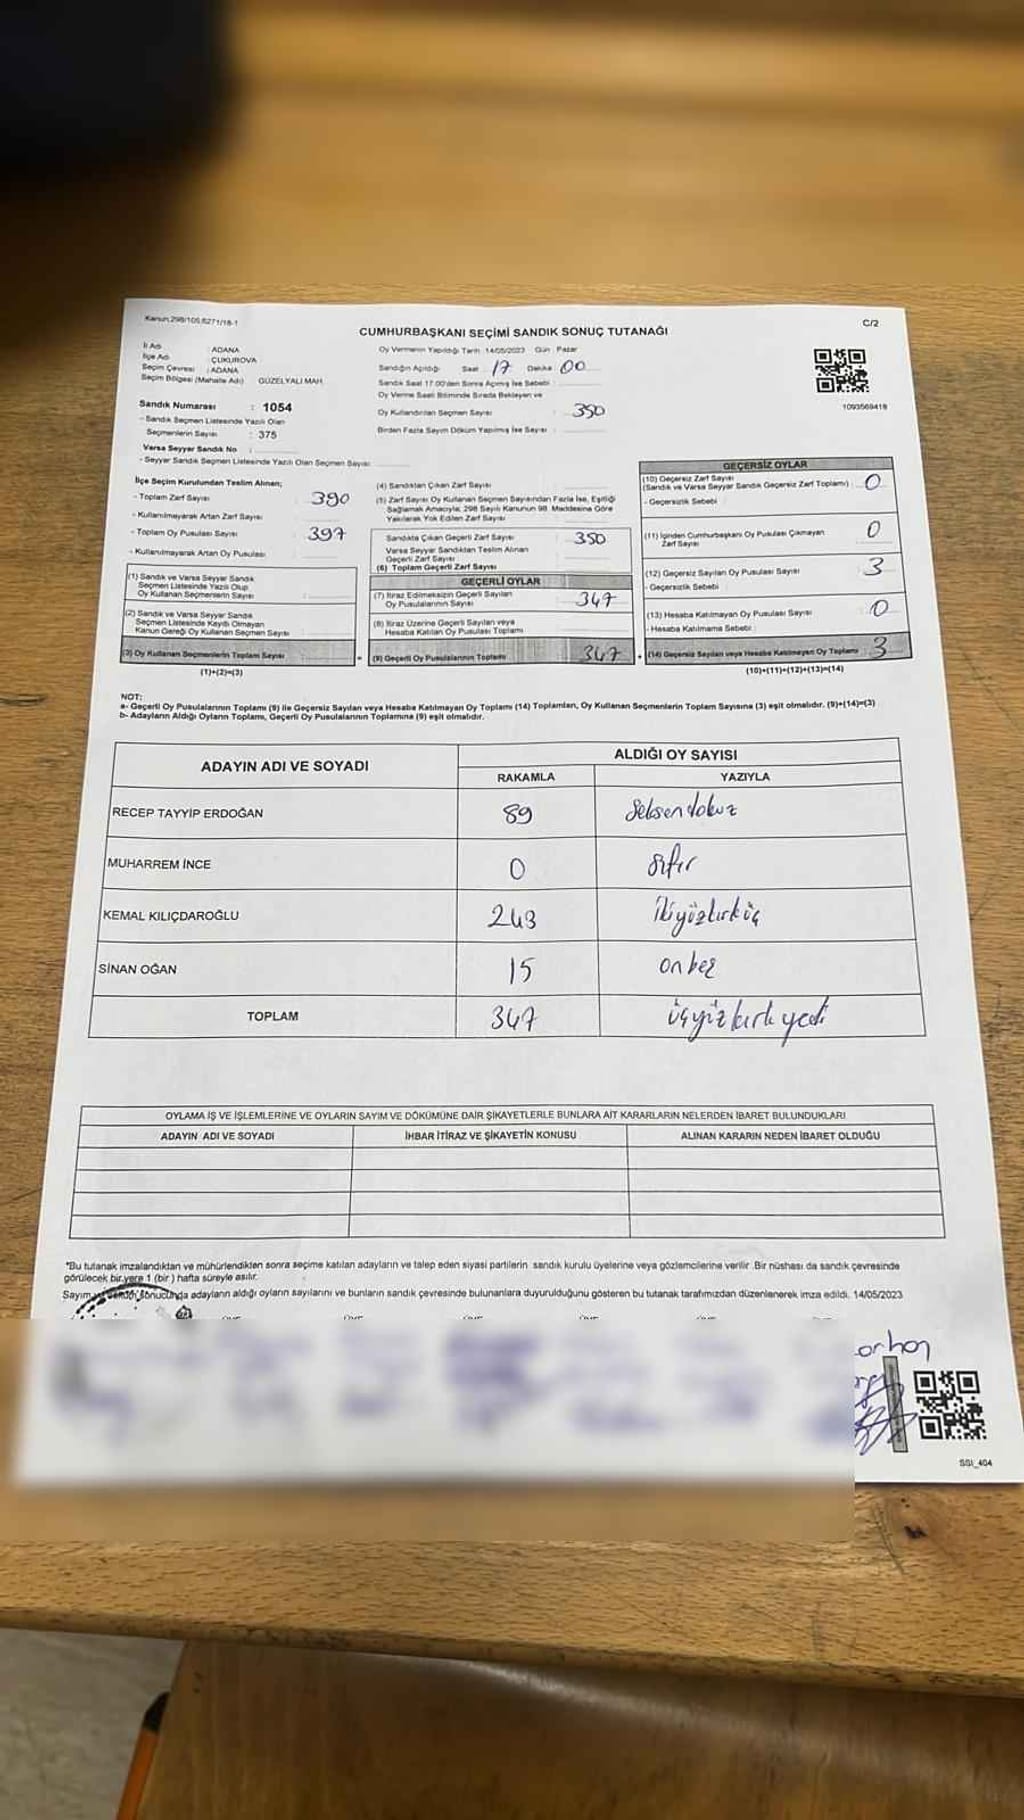 Kanun:298/105,6271/18-1
C/2
CUMHURBAŞKANI SEÇİMİ SANDIK SONUÇ TUTANAĞI
İl Adı : ADANA
İlçe Adı : ÇUKUROVA
Seçim Çevresi : ADANA
Seçim Bölgesi (Mahalle Adı) GÜZELYALI MAH.
Sandık Numarası : 1054
- Sandık Seçmen Listesinde Yazılı Olan
Seçmenlerin Sayısı : 375
Varsa Seyyar Sandık No :
- Seyyar Sandık Seçmen Listesinde Yazılı Olan Seçmen Sayısı:
Oy Vermenin Yapıldığı Tarih :14/05/2023 Gün : Pazar
Sandığın Açıldığı Saat : 17 Dakika : 00
Sandık Saat 17.00'den Sonra Açılmış İse Sebebi :
Oy Verme Saati Bitiminde Sırada Bekleyen ve
Oy Kullandırılan Seçmen Sayısı : 350
Birden Fazla Sayım Döküm Yapılmış İse Sayısı :
1093569418
İlçe Seçim Kurulundan Teslim Alınan;
- Toplam Zarf Sayısı : 390
- Kullanılmayarak Artan Zarf Sayısı :
- Toplam Oy Pusulası Sayısı : 397
- Kullanılmayarak Artan Oy Pusulası :
(1) Sandık ve Varsa Seyyar Sandık
Seçmen Listesinde Yazılı Olup
Oy Kullanan Seçmenlerin Sayısı :
(2) Sandık ve Varsa Seyyar Sandık
Seçmen Listesinde Kayıtlı Olmayan
Kanun Gereği Oy Kullanan Seçmen Sayısı :
(3) Oy Kullanan Seçmenlerin Toplam Sayısı :
(1)+(2)=(3)
(4) Sandıktan Çıkan Zarf Sayısı :
(5) Zarf Sayısı Oy Kullanan Seçmen Sayısından Fazla İse, Eşitliği
Sağlamak Amacıyla; 298 Sayılı Kanunun 98. Maddesine Göre
Yakılarak Yok Edilen Zarf Sayısı :
Sandıkta Çıkan Geçerli Zarf Sayısı : 350
Varsa Seyyar Sandıktan Teslim Alınan
Geçerli Zarf Sayısı :
(6) Toplam Geçerli Zarf Sayısı :
GEÇERLİ OYLAR
(7) İtiraz Edilmeksizin Geçerli Sayılan
Oy Pusulalarının Sayısı : 347
(8) İtiraz Üzerine Geçerli Sayılan veya
Hesaba Katılan Oy Pusulası Toplamı :
(9) Geçerli Oy Pusulalarının Toplamı : 347
GEÇERSİZ OYLAR
(10) Geçersiz Zarf Sayısı
(Sandık ve Varsa Seyyar Sandık Geçersiz Zarf Toplamı) : 0
- Geçersizlik Sebebi :
(11) İçinden Cumhurbaşkanı Oy Pusulası Çıkmayan
Zarf Sayısı : 0
(12) Geçersiz Sayılan Oy Pusulası Sayısı : 3
- Geçersizlik Sebebi :
(13) Hesaba Katılmayan Oy Pusulası Sayısı : 0
- Hesaba Katılmama Sebebi :
(14) Geçersiz Sayılan veya Hesaba Katılmayan Oy Toplamı : 3
(10)+(11)+(12)+(13)=(14)
NOT:
a- Geçerli Oy Pusulalarının Toplamı (9) ile Geçersiz Sayılan veya Hesaba Katılmayan Oy Toplamı (14) Toplamları, Oy Kullanan Seçmenlerin Toplam Sayısına (3) eşit olmalıdır. (9)+(14)=(3)
b- Adayların Aldığı Oyların Toplamı, Geçerli Oy Pusulalarının Toplamına (9) eşit olmalıdır.
ADAYIN ADI VE SOYADI
ALDIĞI OY SAYISI
RAKAMLA YAZIYLA
RECEP TAYYİP ERDOĞAN 89 Seksendokuz
MUHARREM İNCE 0 sıfır
KEMAL KILIÇDAROĞLU 243 ikiyüzkırküç
SİNAN OĞAN 15 onbeş
TOPLAM 347 üçyüzkırkyedi
OYLAMA İŞ VE İŞLEMLERİNE VE OYLARIN SAYIM VE DÖKÜMÜNE DAİR ŞİKAYETLERLE BUNLARA AİT KARARLARIN NELERDEN İBARET BULUNDUKLARI
ADAYIN ADI VE SOYADI İHBAR İTİRAZ VE ŞİKAYETİN KONUSU ALINAN KARARIN NEDEN İBARET OLDUĞU
"Bu tutanak imzalandıktan ve mühürlendikten sonra seçime katılan adayların ve talep eden siyasi partilerin sandık kurulu üyelerine veya gözlemcilerine verilir .Bir nüshası da sandık çevresinde
görülecek bir yere 1 (bir ) hafta süreyle asılır.
Sayım ve döküm sonucunda adayların aldığı oyların sayılarını ve bunların sandık çevresinde bulunanlara duyurulduğunu gösteren bu tutanak tarafımızdan düzenlenerek imza edildi. 14/05/2023
SSI_404